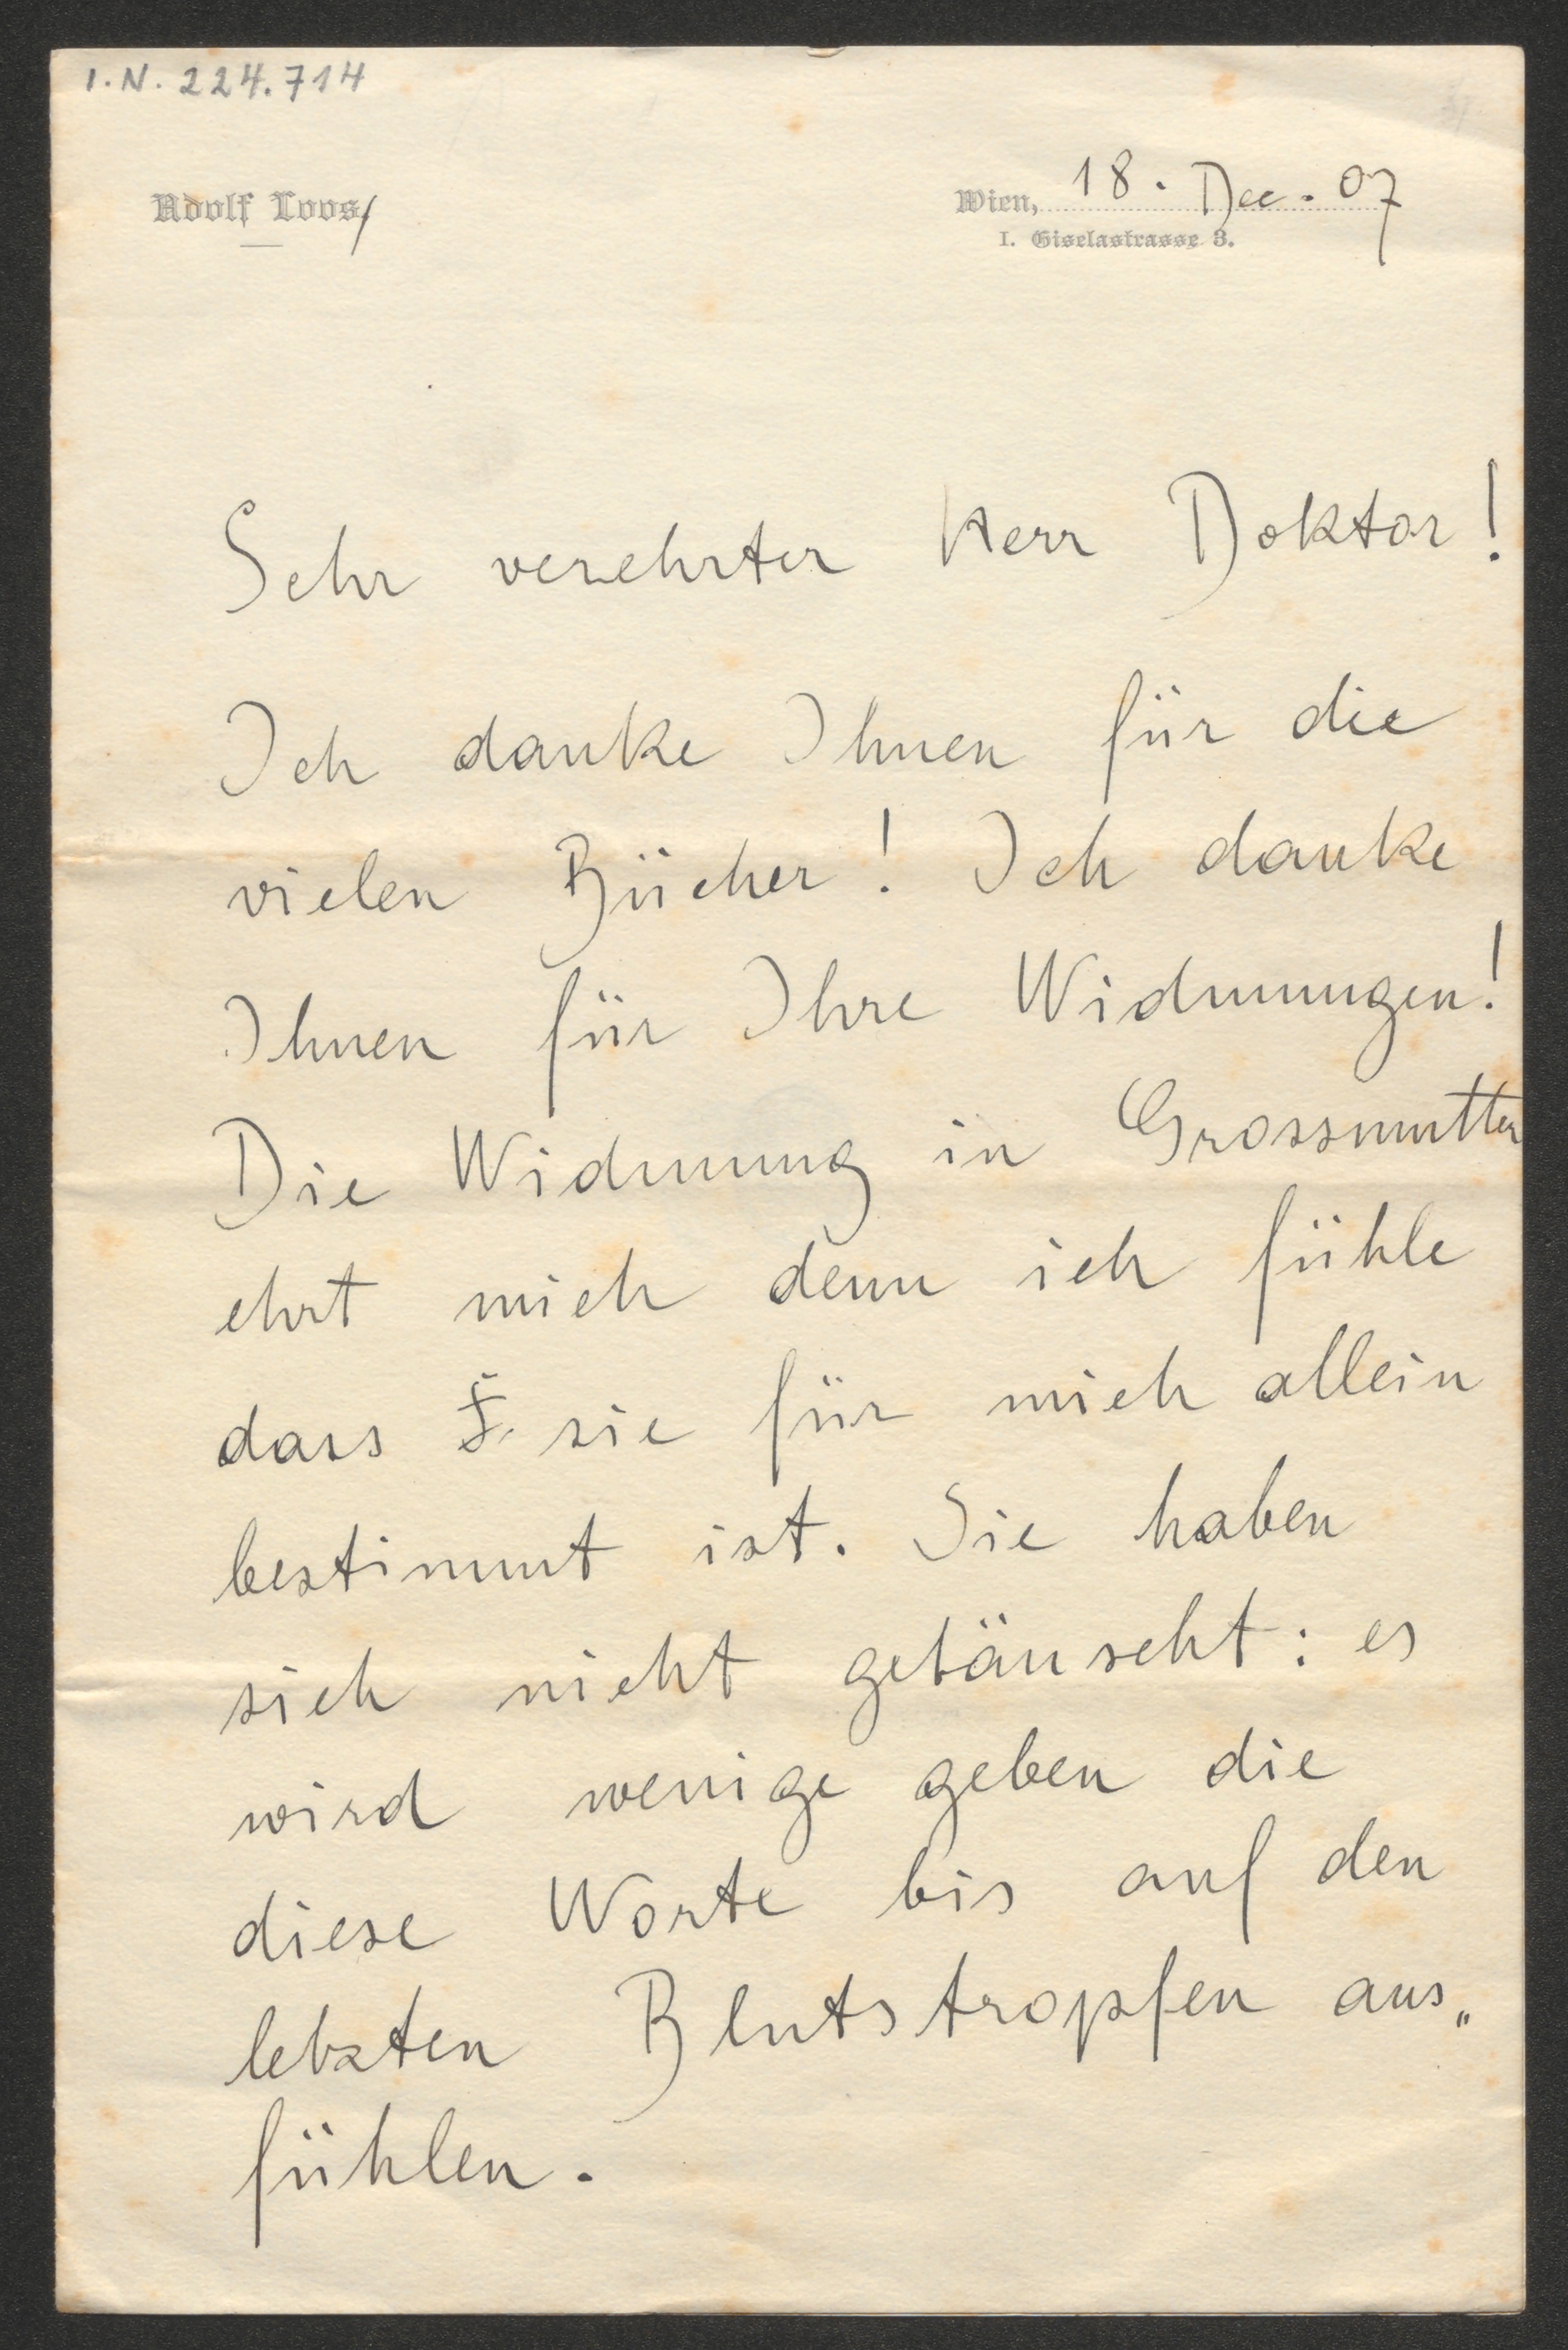 I.N. 224.714
Adolf Loos
Wien, 18. Dec. 07
I. Giselastrasse 3.
Sehr verehrter Herr Doktor!
Ich danke Ihnen für die
vielen Bücher! Ich danke
Ihnen für Ihre Widmungen!
Die Widmung in Grossmutter
ehrt mich denn ich fühle
dass sie für mich allein
bestimmt ist. Sie haben
sich nicht getäuscht: es
wird wenige geben die
diese Worte bis auf den
letzten Blutstropfen aus„
fühlen.